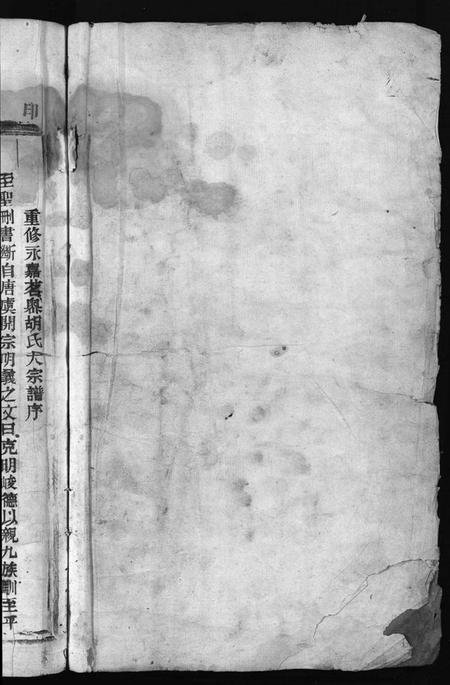 印
重修永嘉茗㠘胡氏大宗譜序
至聖刪書斷自唐虞開宗明義之文曰克明峻德以親九族馴至平